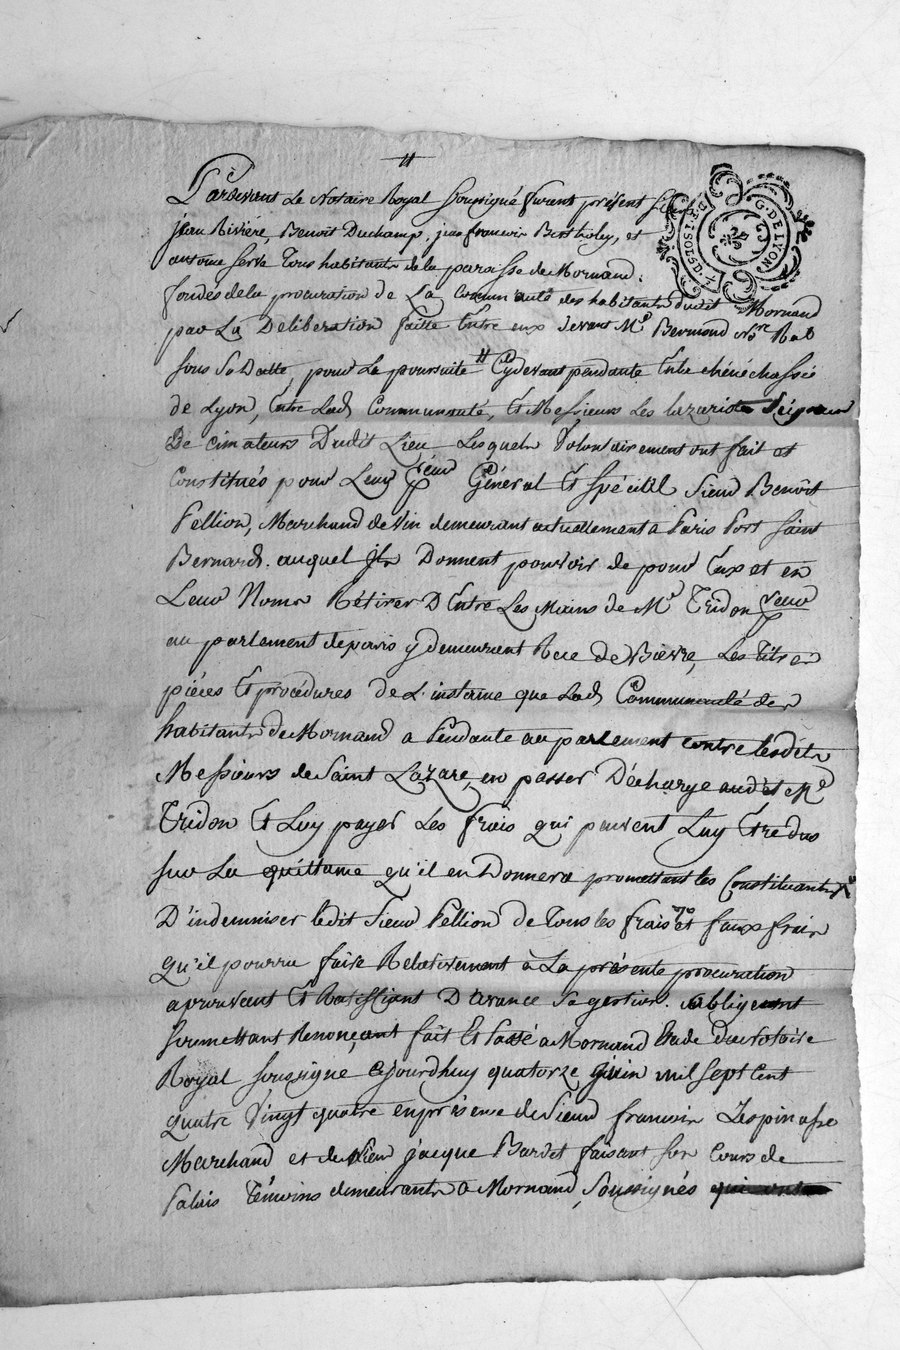 Pardevant Le Notaire Royal soussigné furent présent Sr
jean Rivière, Benoit Duchamp, jean francois Bertholy, et
antoine serve Tous habitants de la paroisse de Mornand.
fondés de la procuration de La Communauté des habitants dudit Mornand
par La Déliberation faitte Entre eux devant Me Bermond Nore Ral
sous Sa Datte, pour La poursuite # Cydevant pendante En la sénéchassée
de Lyon, Entre Lad. Communauté, Et Messieurs Les lazariste Seigneur
De cimateurs Dudit Lieu Lesquels Volontairement ont fait et
Constitués pour Leur preur Général Et spécial Sieur Benoît
Pellion, Marchand de Vin demeurant actuellement a Paris Port saint
Bernard. auquel ils Donnent pouvoir de pour Eux et en
Leur Noms Rétirer D'Entre Les Mains de Me Tridon preur
au parlement de paris y demeurant Rue de Bièvre, Les Titres
pièces Et procédures de L'instance que Lad. Communauté des
habitants de Mornand a Pendante au parlement contre lesdits
Messieurs de Saint Lazare, en passer Décharge audit Me
Tridon Et Luy payer Les frais qui peuvent Luy Etre dus
sur La quittance qu'il en Donnera promettant les Constituants
D'indemniser ledit Sieur Pellion de Tous les frais et faux frais
qu'il pourra faire Relativement à La présente procuration
aprouvant Et Ratiffiant D'avance Sa gestion. obligeant
soumettant Renonçant fait Et Passé a Mornand Etude du Notaire
Royal soussigné Cejourdhuy quatorze juin mil sept Cent
quatre Vingt quatre en présence de Sieur francois Lespinasse
Marchand et de Sieur jacque Bardet faisant ses Cours de
Palais Témoins demeurants a Mornand, Soussignés
G. DE LYON